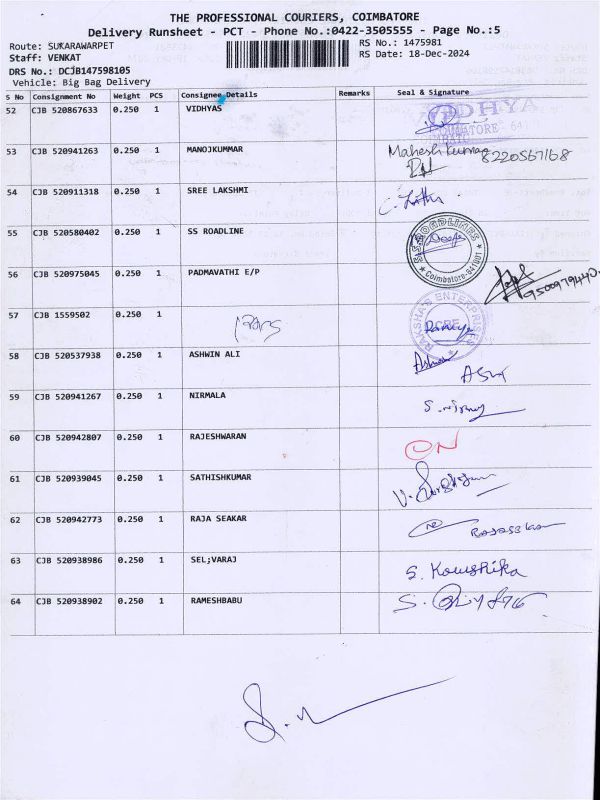 THE PROFESSIONAL COURIERS, COIMBATORE
Delivery Runsheet - PCT - Phone No.:0422-3505555 - Page No.:5
Route: SUKARAWARPET RS No.: 1475981
Staff: VENKAT RS Date: 18-Dec-2024
DRS No.: DCJB147598105
Vehicle: Big Bag Delivery
S No Consignment No Weight PCS Consignee Details Remarks Seal & Signature
52 CJB 520867633 0.250 1 VIDHYAS
53 CJB 520941263 0.250 1 MANOJKUMMAR Mahesh Kumar 8220567168
54 CJB 520911318 0.250 1 SREE LAKSHMI
55 CJB 520580402 0.250 1 SS ROADLINE Coimbatore-641001
56 CJB 520975045 0.250 1 PADMAVATHI E/P
57 CJB 1559502 0.250 1 RAKSHA'S ENTERPRISES CBE
58 CJB 520537938 0.250 1 ASHWIN ALI Ashwin
59 CJB 520941267 0.250 1 NIRMALA S. nirmay
60 CJB 520942807 0.250 1 RAJESHWARAN ON
61 CJB 520939045 0.250 1 SATHISHKUMAR
62 CJB 520942773 0.250 1 RAJA SEAKAR
63 CJB 520938986 0.250 1 SEL;VARAJ S. Kowshika
64 CJB 520938902 0.250 1 RAMESHBABU